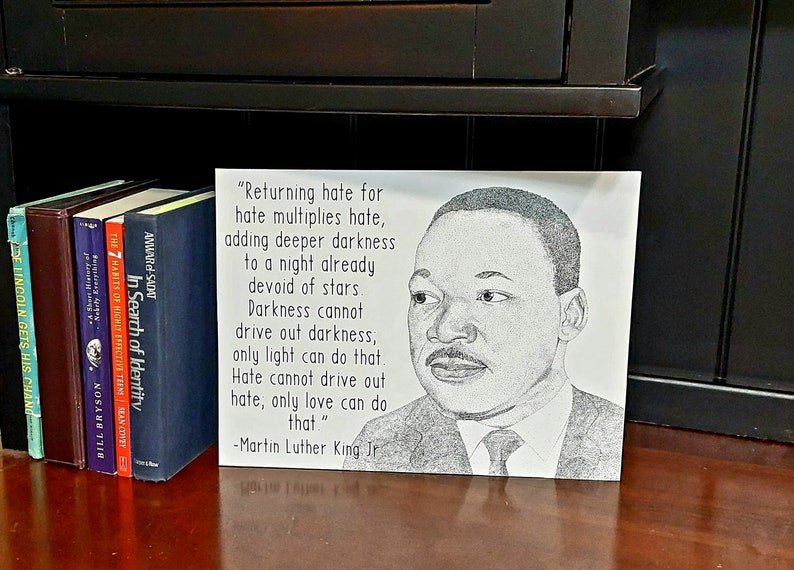 ABE LINCOLN GETS HIS CHANCE
"A Short History of
Nearly Everything"
BILL BRYSON
THE 7 HABITS OF HIGHLY EFFECTIVE TEENS
SEAN COVEY
ANWAR el-SADAT
In Search of Identity
Harper & Row
"Returning hate for
hate multiplies hate,
adding deeper darkness
to a night already
devoid of stars.
Darkness cannot
drive out darkness;
only light can do that.
Hate cannot drive out
hate, only love can do
that."
-Martin Luther King Jr